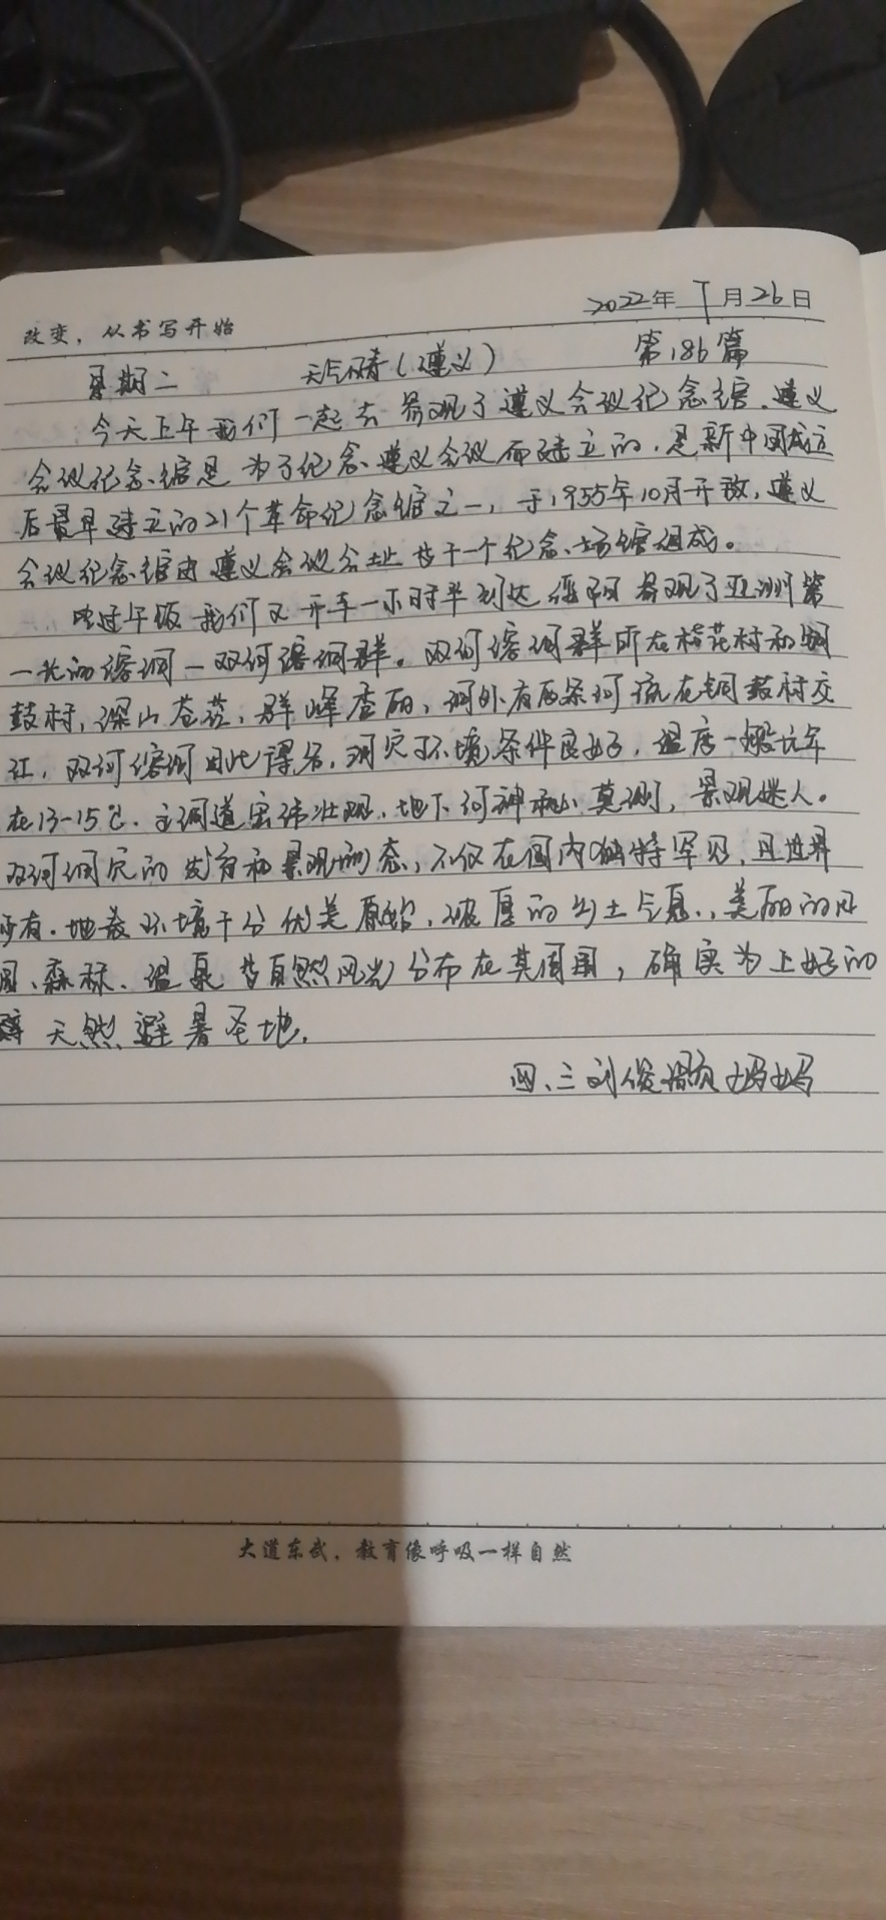 改变，从书写开始
2022年 7月26日
星期二 天气晴(遵义) 第186篇
今天上午我们一起去参观了遵义会议纪念馆.遵义
会议纪念馆是为了纪念遵义会议而建立的,是新中国成立
后最早建立的21个革命纪念馆之一,于1955年10月开放,遵义
会议纪念馆由遵义会议会址等十一个纪念场馆组成。
吃过午饭我们又开车一小时半到达绥阳参观了亚洲第
一长的溶洞—双河溶洞群。双河溶洞群所在桂花村和铜
鼓村,深山苍茫,群峰秀丽,洞外有两条河流在铜鼓村交
汇,双河溶洞因此得名,洞穴环境条件良好,温度一般抗年
在13-15℃.主洞道宏伟壮观.地下河神秘莫测,景观迷人。
双河洞穴的发育和景观形态,不仅在国内独特罕见,且世界
少有.地表环境十分优美原始,浓厚的乡土气息,美丽的田
园、森林、温泉等自然风光分布在其周围,确实为上好的
天然避暑圣地.
四、三刘俊颢妈妈
大道东武，教育像呼吸一样自然